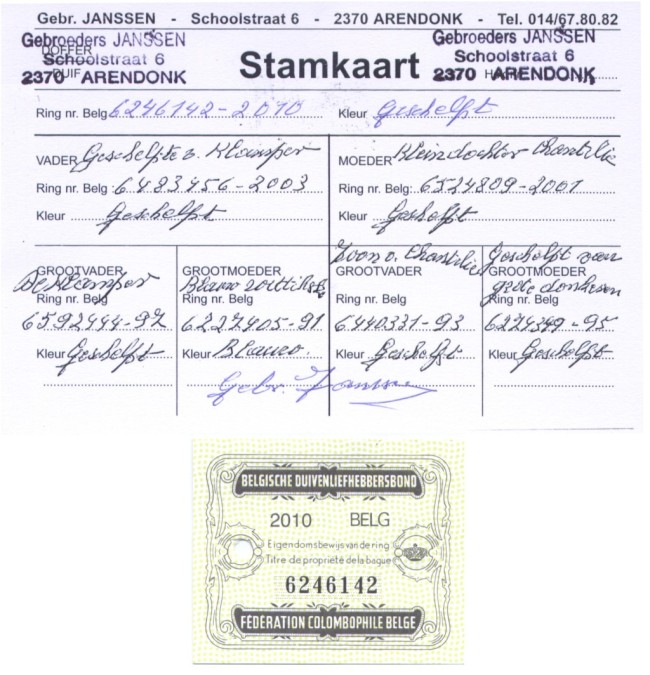 Gebr. JANSSEN - Schoolstraat 6 - 2370 ARENDONK - Tel. 014/67.80.82
Gebroeders JANSSEN
Schoolstraat 6
2370 ARENDONK
DOFFER
DUIF
Stamkaart
Gebroeders JANSSEN
Schoolstraat 6
2370 ARENDONK
Ring nr. Belg 6246142-2010
Kleur Geschelpt
VADER Geschelpte v. Klamper
Ring nr. Belg 6483456-2003
Kleur Geschelpt
MOEDER Kleindochter Chantilie
Ring nr. Belg: 6524809-2001
Kleur Geschelpt
GROOTVADER
De Klamper
Ring nr. Belg
6592444-97
Kleur Geschelpt
GROOTMOEDER
Blauw
Ring nr. Belg
6227405-91
Kleur Blauw.
Zoon v. Chantilie
GROOTVADER
Ring nr. Belg
6440331-93
Kleur Geschelpt
Geschelpt van
GROOTMOEDER
grote donkeren
Ring nr. Belg
6274349-95
Kleur Geschelpt
Gebr. Janssen
BELGISCHE DUIVENLIEFHEBBERSBOND
2010 BELG
Eigendomsbewijs van de ring
Titre de propriété de la bague
6246142
FÉDÉRATION COLOMBOPHILE BELGE